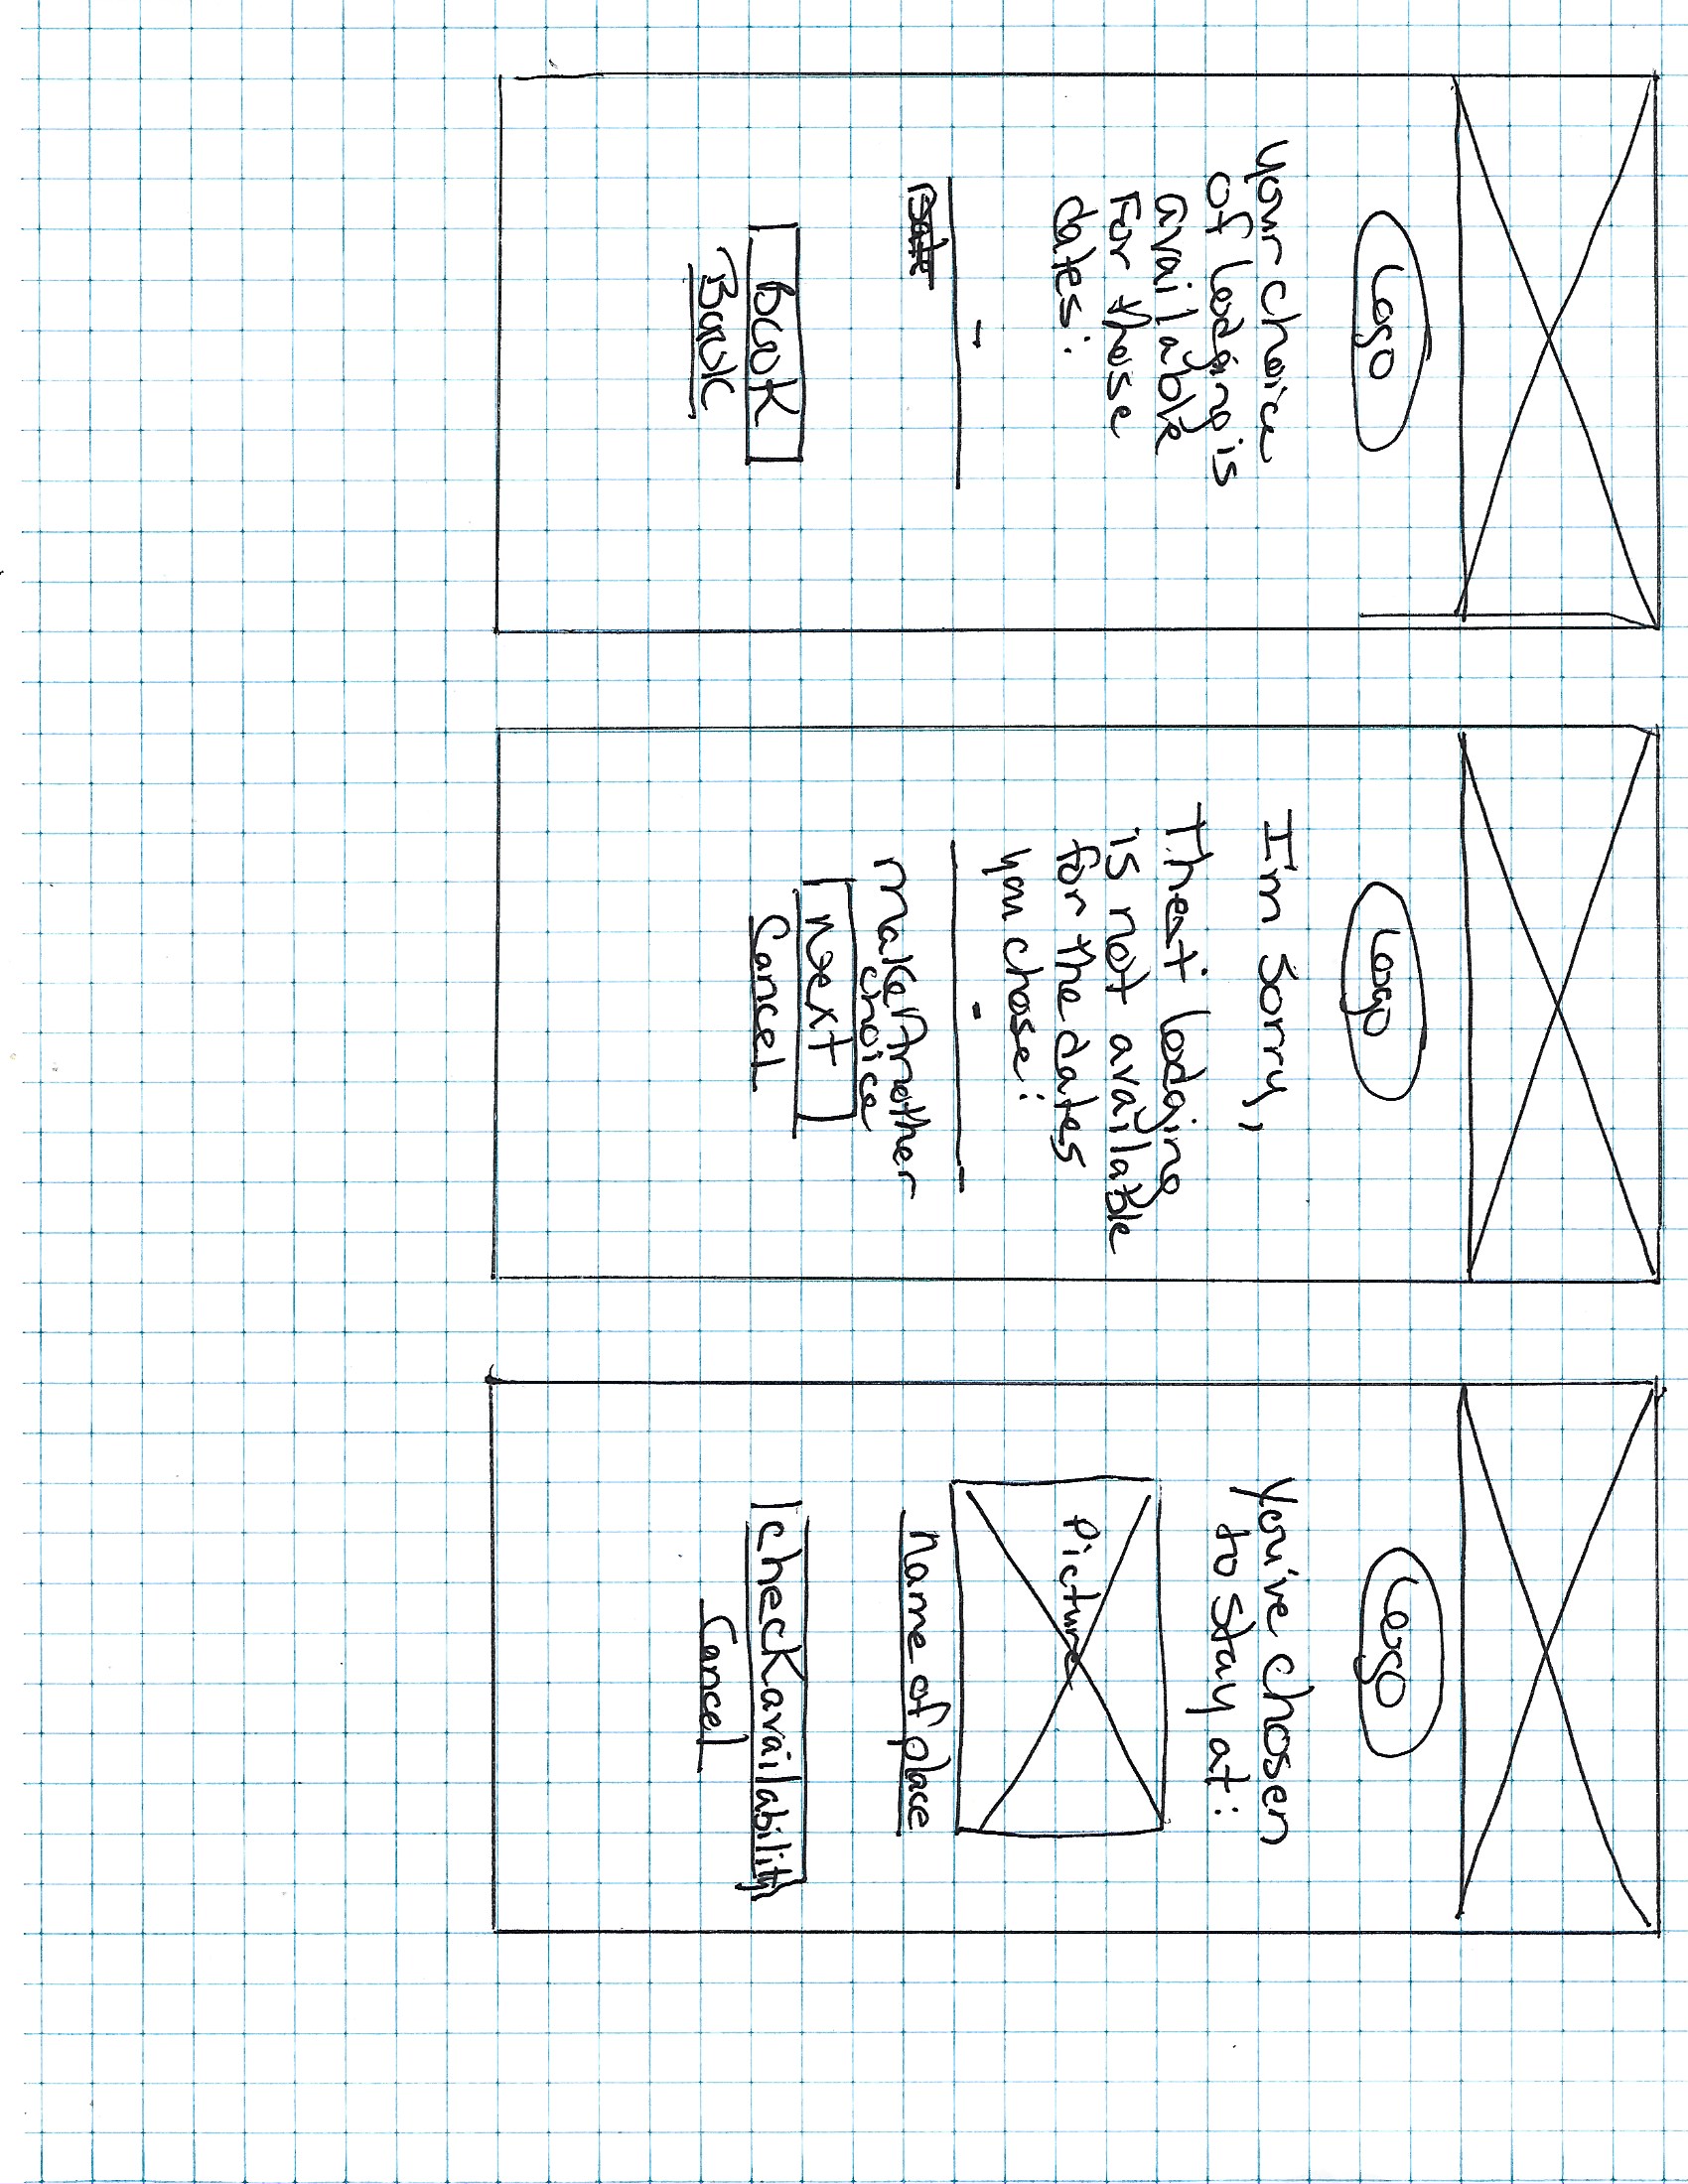 Logo
Your choice
of lodging is
available
For those
dates:
-
book
Back
Logo
I'm Sorry,
That lodging
is not available
for the dates
you chose:
-
Make Another
choice
next
Cancel
Logo
You've chosen
to stay at:
Picture
Name of place
Check availability
Cancel